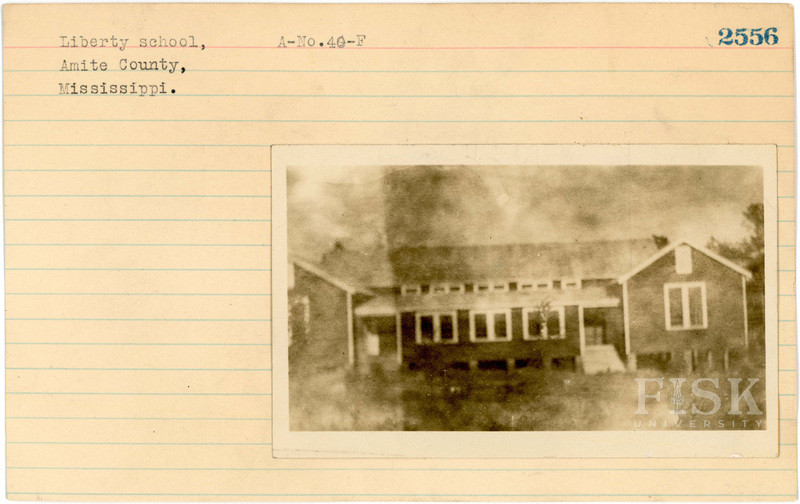 Liberty school, A-No.40-F 2556
Amite County,
Mississippi.
FISK
UNIVERSITY